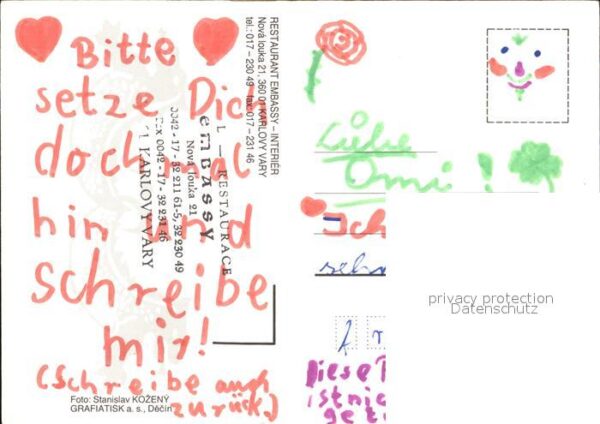 Bitte
setze Dich
doch mal
hin und
schreibe
mir!
(Schreibe auch
zurück)
Foto: Stanislav KOŽENÝ
GRAFIATISK a. s., Děčín
RESTAURACE
EMBASSY
Nová louka 21
0042 - 17 - 32 211 61-5, 32 230 49
Fax 0042 - 17 - 32 231 46
01 KARLOVY VARY
RESTAURANT EMBASSY – INTERIÉR
Nová louka 21, 360 01 KARLOVY VARY
tel.: 017 – 230 49 fax: 017 – 231 46
Liebe
Omi!
Ich
privacy protection
Datenschutz
Diese
ist